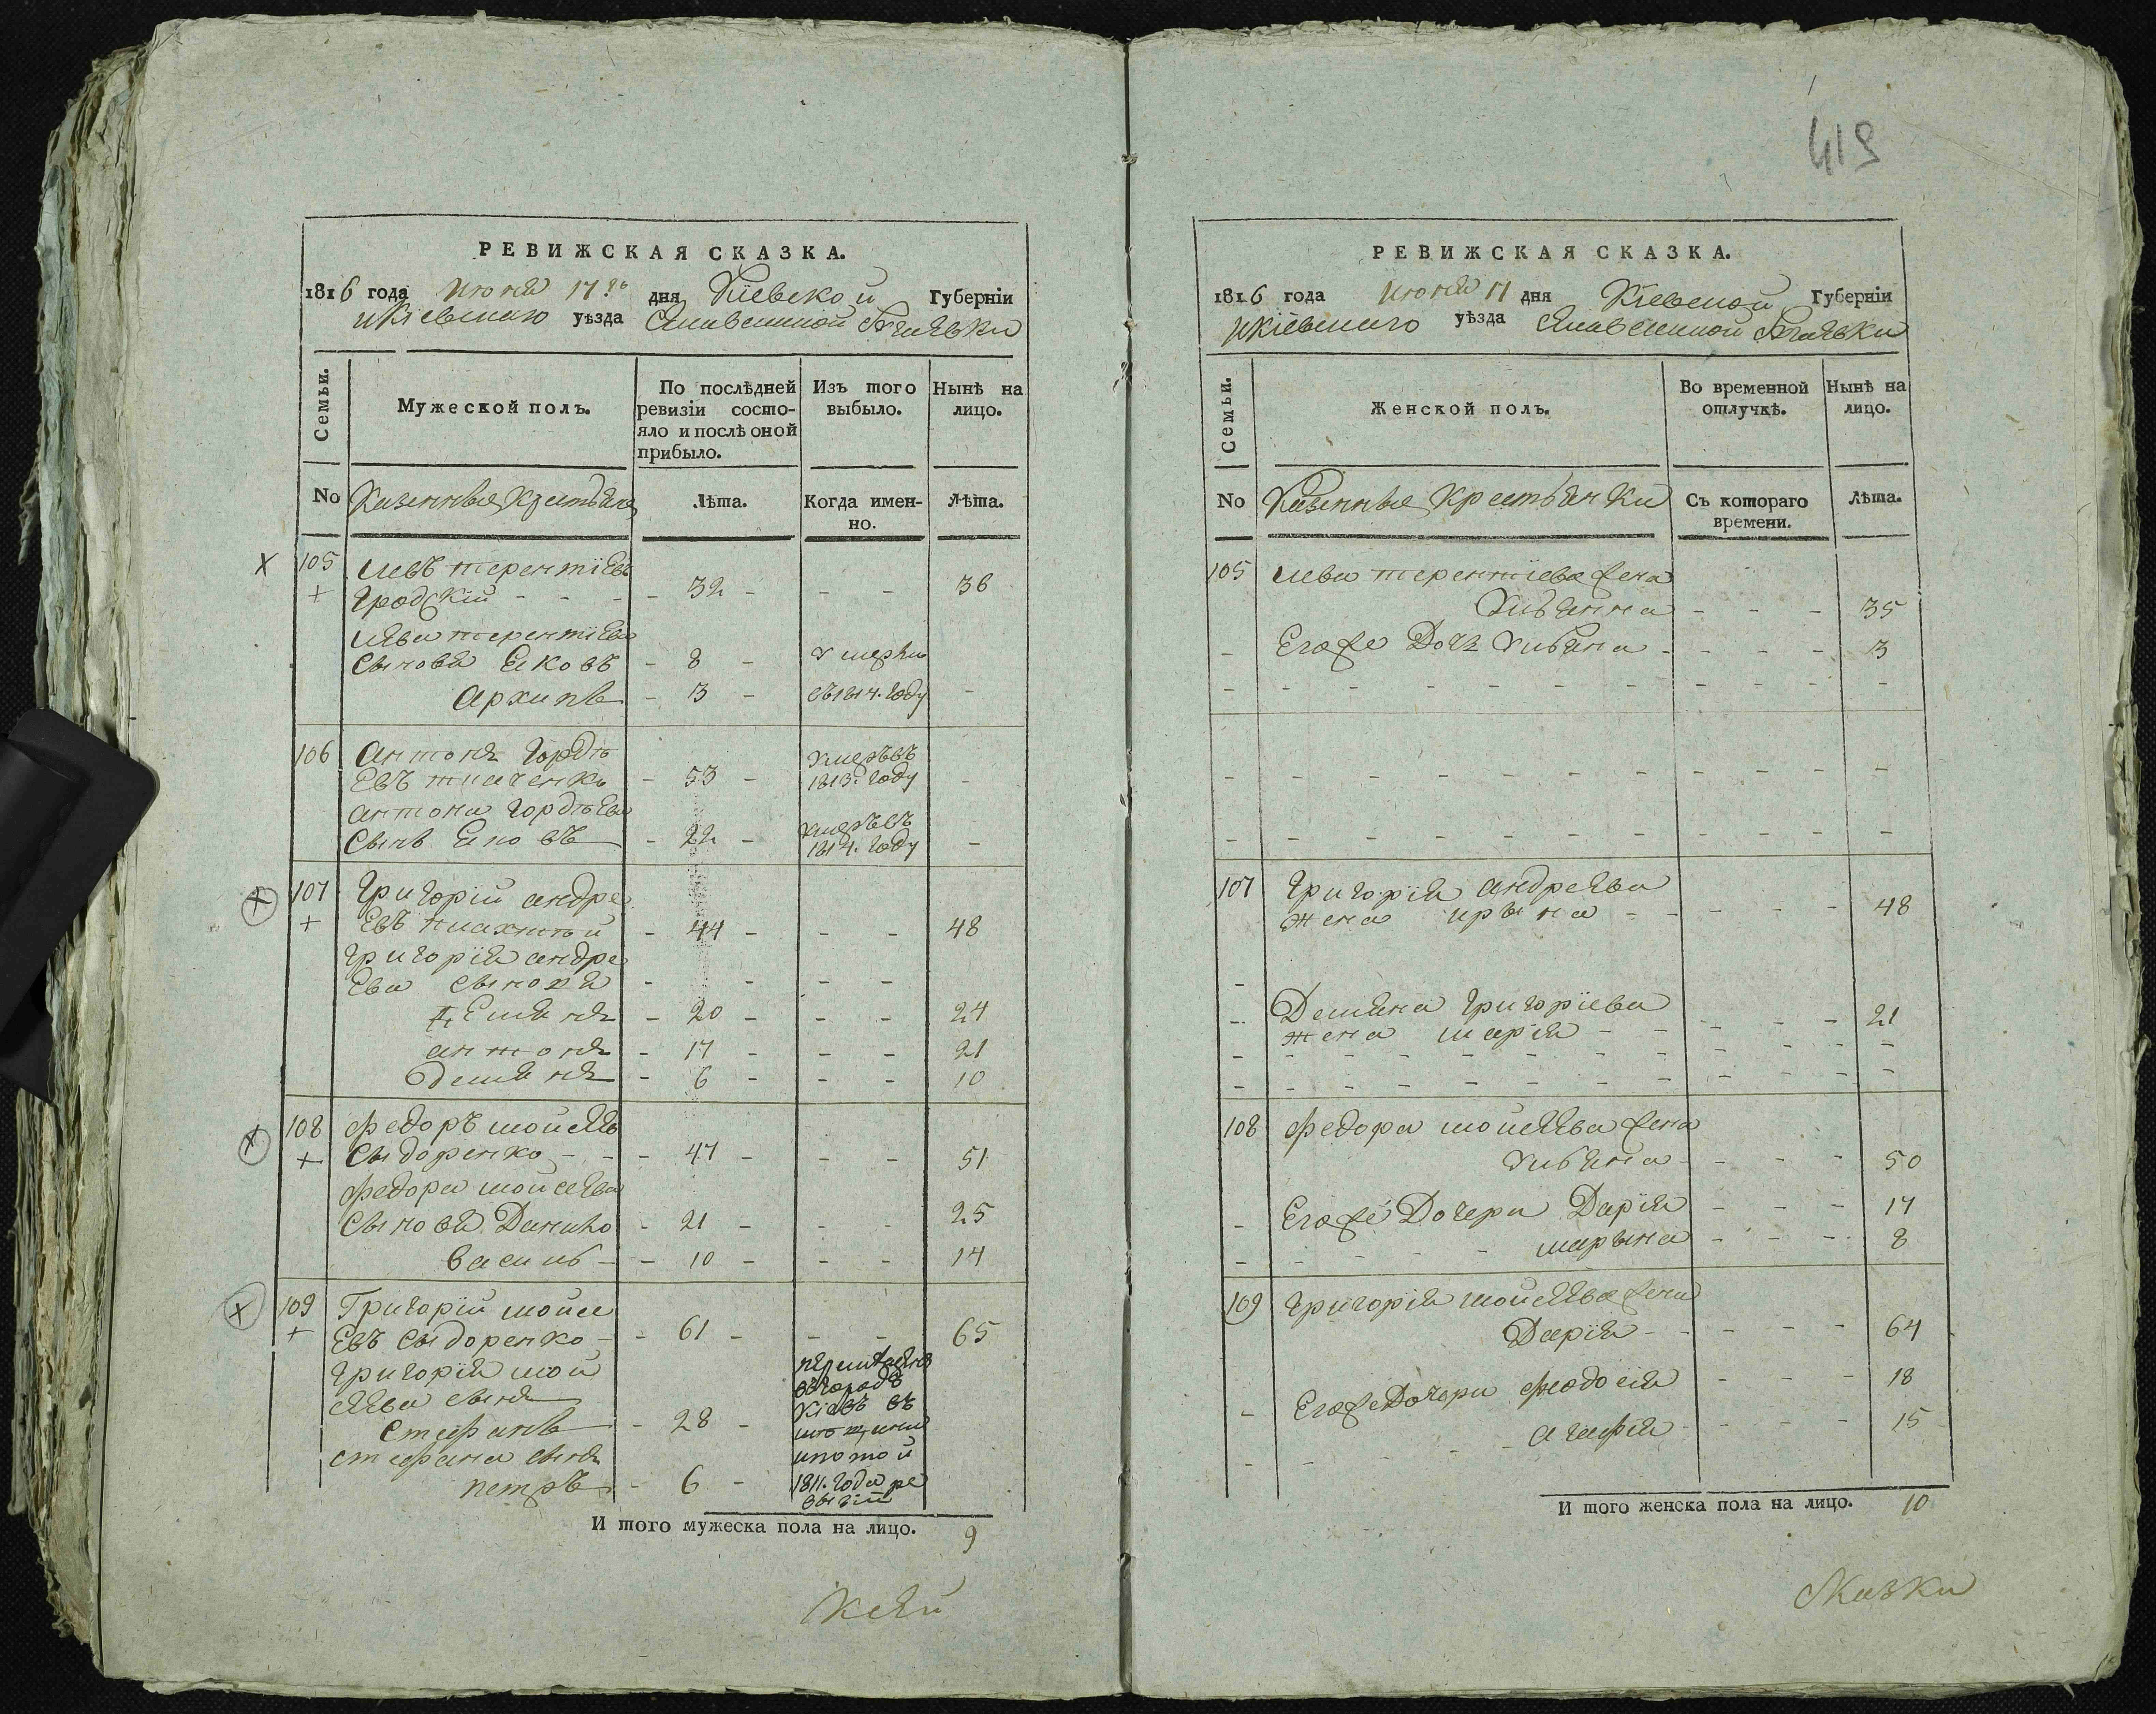 419
РЕВИЖСКАЯ СКАЗКА.
1816 года Июня 17го дня Кіевской Губерніи
икіевского уѣзда
Семьи.
Мужеской полъ.
По послѣдней ревизіи состо-
яло и послѣ оной
прибыло.
Изъ того выбыло.
Нынѣ на лицо.
No Казенные крестьяне
Лѣта.
Когда имен-
но.
Лѣта.
105 Левъ терентіевъ
Гродскій - 32 - - - 36
Лева терентіева
Сыновя Яковъ - 8 - Умерли
Архипъ - 3 - въ 1814. году -
106 Антонъ Гордѣ
евъ ткаченко - 53 - Умеръ въ 1813. году -
Антона Гордѣева
Сынъ Яковъ - 22 - Умеръ въ 1814. году -
107 Григорій андре
евъ - 44 - - - 48
Григорія андре
ева сыновя - - - -
Емелянъ - 20 - - - 24
антонъ - 17 - - - 21
демянъ - 6 - - - 10
108 Федоръ мойсеевъ
Сыдоренко - 47 - - - 51
Федора мойсеева
Сыновя Данило - 21 - - - 25
Василь - 10 - - - 14
109 Григорій мойсе
евъ Сыдоренко - 61 - - - 65
Григорія мой
сеева сынъ
Стефанъ - 28 -
стефана сынъ
петръ - 6 -
въ городъ
Кіевъ въ
по той
1811. года ре
визіи
И того мужеска пола на лицо. 9
РЕВИЖСКАЯ СКАЗКА.
1816 года Июня 17 дня Кіевской Губерніи
икіевского уѣзда
Семьи.
Женской полъ.
Во временной отлучкѣ.
Нынѣ на лицо.
No Казенные крестьянки
Съ котораго времени.
Лѣта.
105 Лева терентіева жена
Улияна - - - 35
- Егоже Дочь Улияна - - - - 3
107 Григорія андреева
жена ирына - - - - - 48
- Демяна Григоріева
жена марія - - - - - 21
108 Федора мойсеева жена
Улияна - - - - 50
- Егоже Дочери Дарія - - - 17
марына - - - 8
109 Григорія мойсеева жена
Дарія - - - - - 64
- Егоже Дочери феодосія - - - 18
агафія - - - - 15
И того женска пола на лицо. 10
Сказки